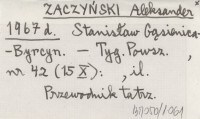 ZACZYŃSKI Aleksander
1967 d. Stanisław Gąsienica-
-Byrcyn. — Tyg. Powsz.,
nr 42 (15 X): , il.
Przewodnik tatrz.